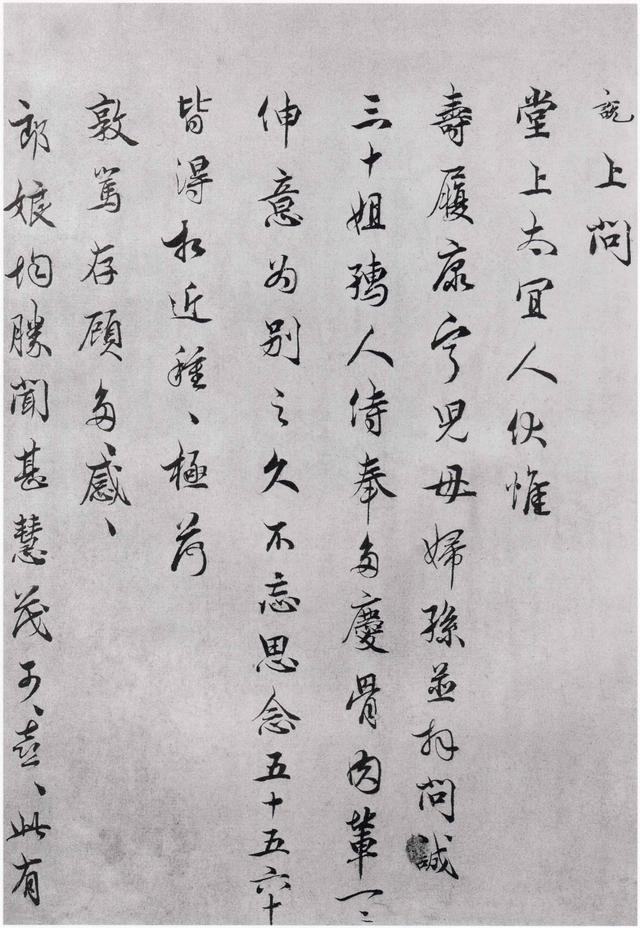 説上問
堂上太宜人伏惟
壽履康寧兒母婦孫並拜問誠
三十姐孺人侍奉多慶骨肉輩一二
伸意为别之久不忘思念五十五六十
皆得相近種〻極荷
敦篤存顧多〻感〻
郎娘均勝聞甚慧茂可〻喜〻此有